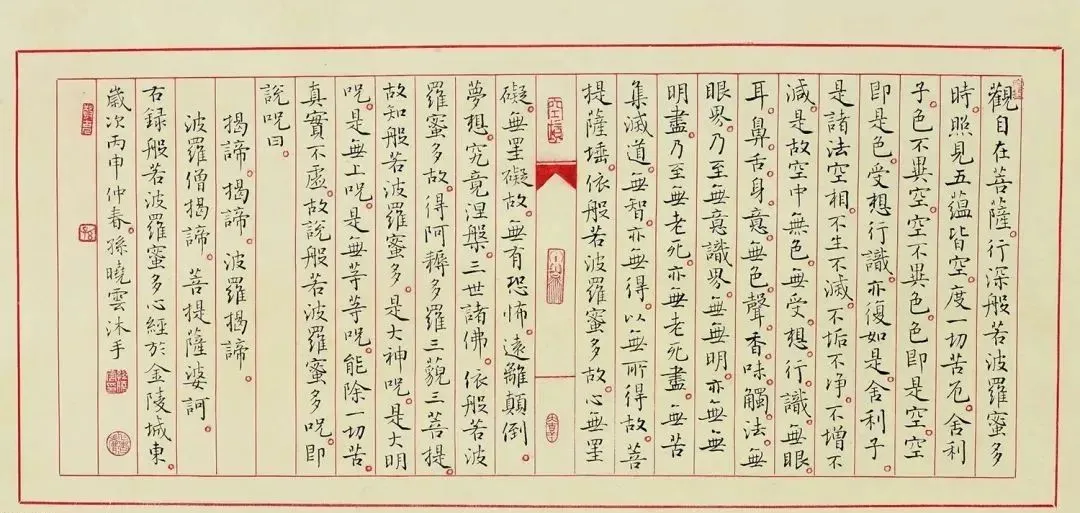 觀自在菩薩。行深般若波羅蜜多
時。照見五蘊皆空。度一切苦厄。舍利
子。色不異空。空不異色。色即是空。空
即是色。受想行識。亦復如是。舍利子。
是諸法空相。不生不滅。不垢不净。不增不
減。是故空中無色。無受想行識。無眼
耳鼻舌身意。無色聲香味觸法。無
眼界。乃至無意識界。無無明。亦無無
明盡。乃至無老死。亦無老死盡。無苦
集滅道。無智亦無得。以無所得故。菩
提薩埵。依般若波羅蜜多故。心無罣
礙。無罣礙故。無有恐怖。遠離顛倒
夢想。究竟涅槃。三世諸佛。依般若波
羅蜜多故。得阿耨多羅三藐三菩提。
故知般若波羅蜜多。是大神咒。是大明
咒。是無上咒。是無等等咒。能除一切苦。
真實不虛。故說般若波羅蜜多咒。即
說咒曰。
揭諦。揭諦。波羅揭諦。
波羅僧揭諦。菩提薩婆訶。
右録般若波羅蜜多心經於金陵城東。
歲次丙申仲春。孫曉雲沐手